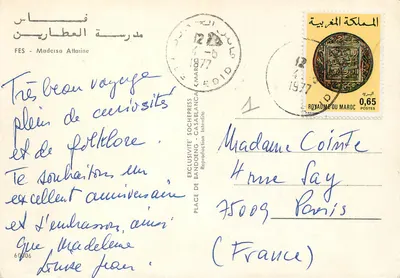 فاس
مدرسة العطارين
FES - Madersa Attarine
Très beau voyage
plein de curiosités
et de folklore.
Te souhaitons un
excellent anniversaire
et t'embrassons, ainsi
que Madeleine
Louise Jean.
68006
EXCLUSIVITÉ SOCHEPRESS
PLACE DE BANDOENG - CASABLANCA (MAROC)
Reproduction interdite
12
4 - 6
1977
المملكة المغربية
ROYAUME DU MAROC
0,65
POSTES
البريد
12
1977
1
Madame Cointe
4 rue Say
75009 Paris
(France)